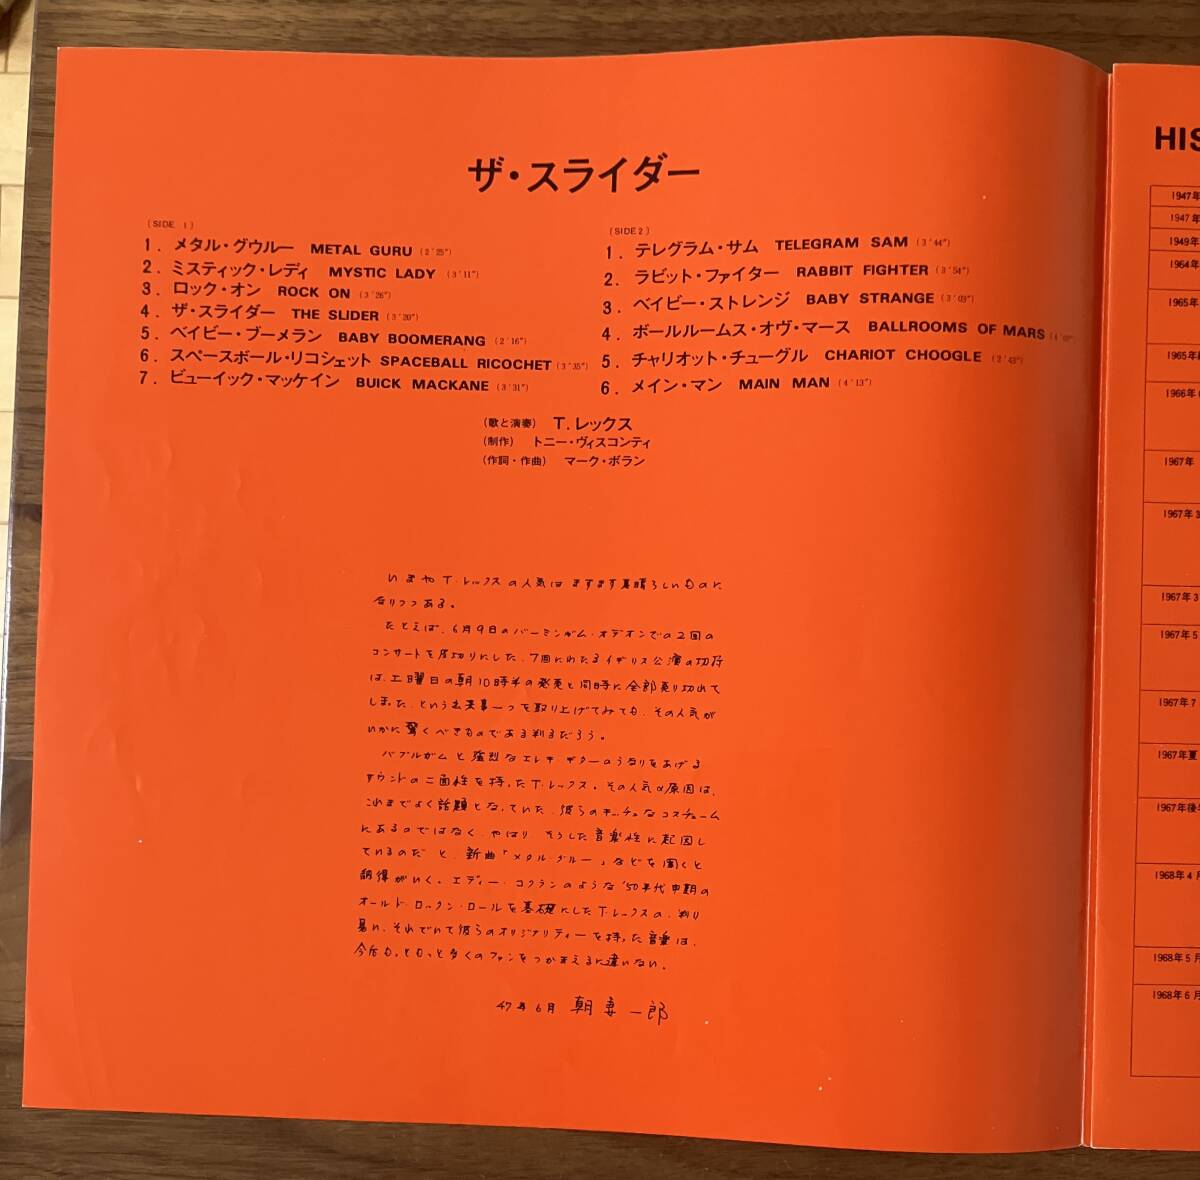 ザ・スライダー
(SIDE 1)
1. メタル・グウルー METAL GURU (2'25")
2. ミスティック・レディ MYSTIC LADY (3'11")
3. ロック・オン ROCK ON (3'26")
4. ザ・スライダー THE SLIDER (3'20")
5. ベイビー・ブーメラン BABY BOOMERANG (2'16")
6. スペースボール・リコシェット SPACEBALL RICOCHET (3'35")
7. ビューイック・マッケイン BUICK MACKANE (3'31")
(SIDE 2)
1. テレグラム・サム TELEGRAM SAM (3'44")
2. ラビット・ファイター RABBIT FIGHTER (3'54")
3. ベイビー・ストレンジ BABY STRANGE (3'03")
4. ボールルームス・オヴ・マース BALLROOMS OF MARS
5. チャリオット・チューグル CHARIOT CHOOGLE (2'43")
6. メイン・マン MAIN MAN (4'13")
(歌と演奏) T.レックス
(制作) トニー・ヴィスコンティ
(作詞・作曲) マーク・ボラン
いまやT・レックスの人気はますます素晴らしいものに
なりつつある。
たとえば、6月9日のバーミンガム・オデオンでの2回の
コンサートを皮切りにした、7回にわたるイギリス公演の切符
は、土曜日の朝10時半の発売と同時に全部売り切れて
しまった、という出来事一つを取り上げてみても、その人気が
いかに驚くべきものである判るだろう。
バブルガムと強烈なエレキ・ギターのうなりをあげる
サウンドの二面性を持ったT・レックス。その人気の原因は、
これまでよく話題となっていた、彼らのキッチュなコスチューム
にあるのではなく、やはり、そうした音楽性に起因し
ているのだと、新曲「メタル・グルー」などを聞くと
納得がいく。エディー・コクランのような'50年代中期の
オールド・ロックン・ロールを基礎にしたT・レックスの、判り
易い、それでいて彼らのオリジナリティーを持った音楽は、
今后も、もっと多くのファンをつかまえるに違いない。
47年6月 朝妻一郎
HIS
1947年
1947年
1949年
1964年
1965年
1965年
1966年
1967年
1967年3
1967年3
1967年5
1967年7
1967年夏
1967年後
1968年4月
1968年5月
1968年6月